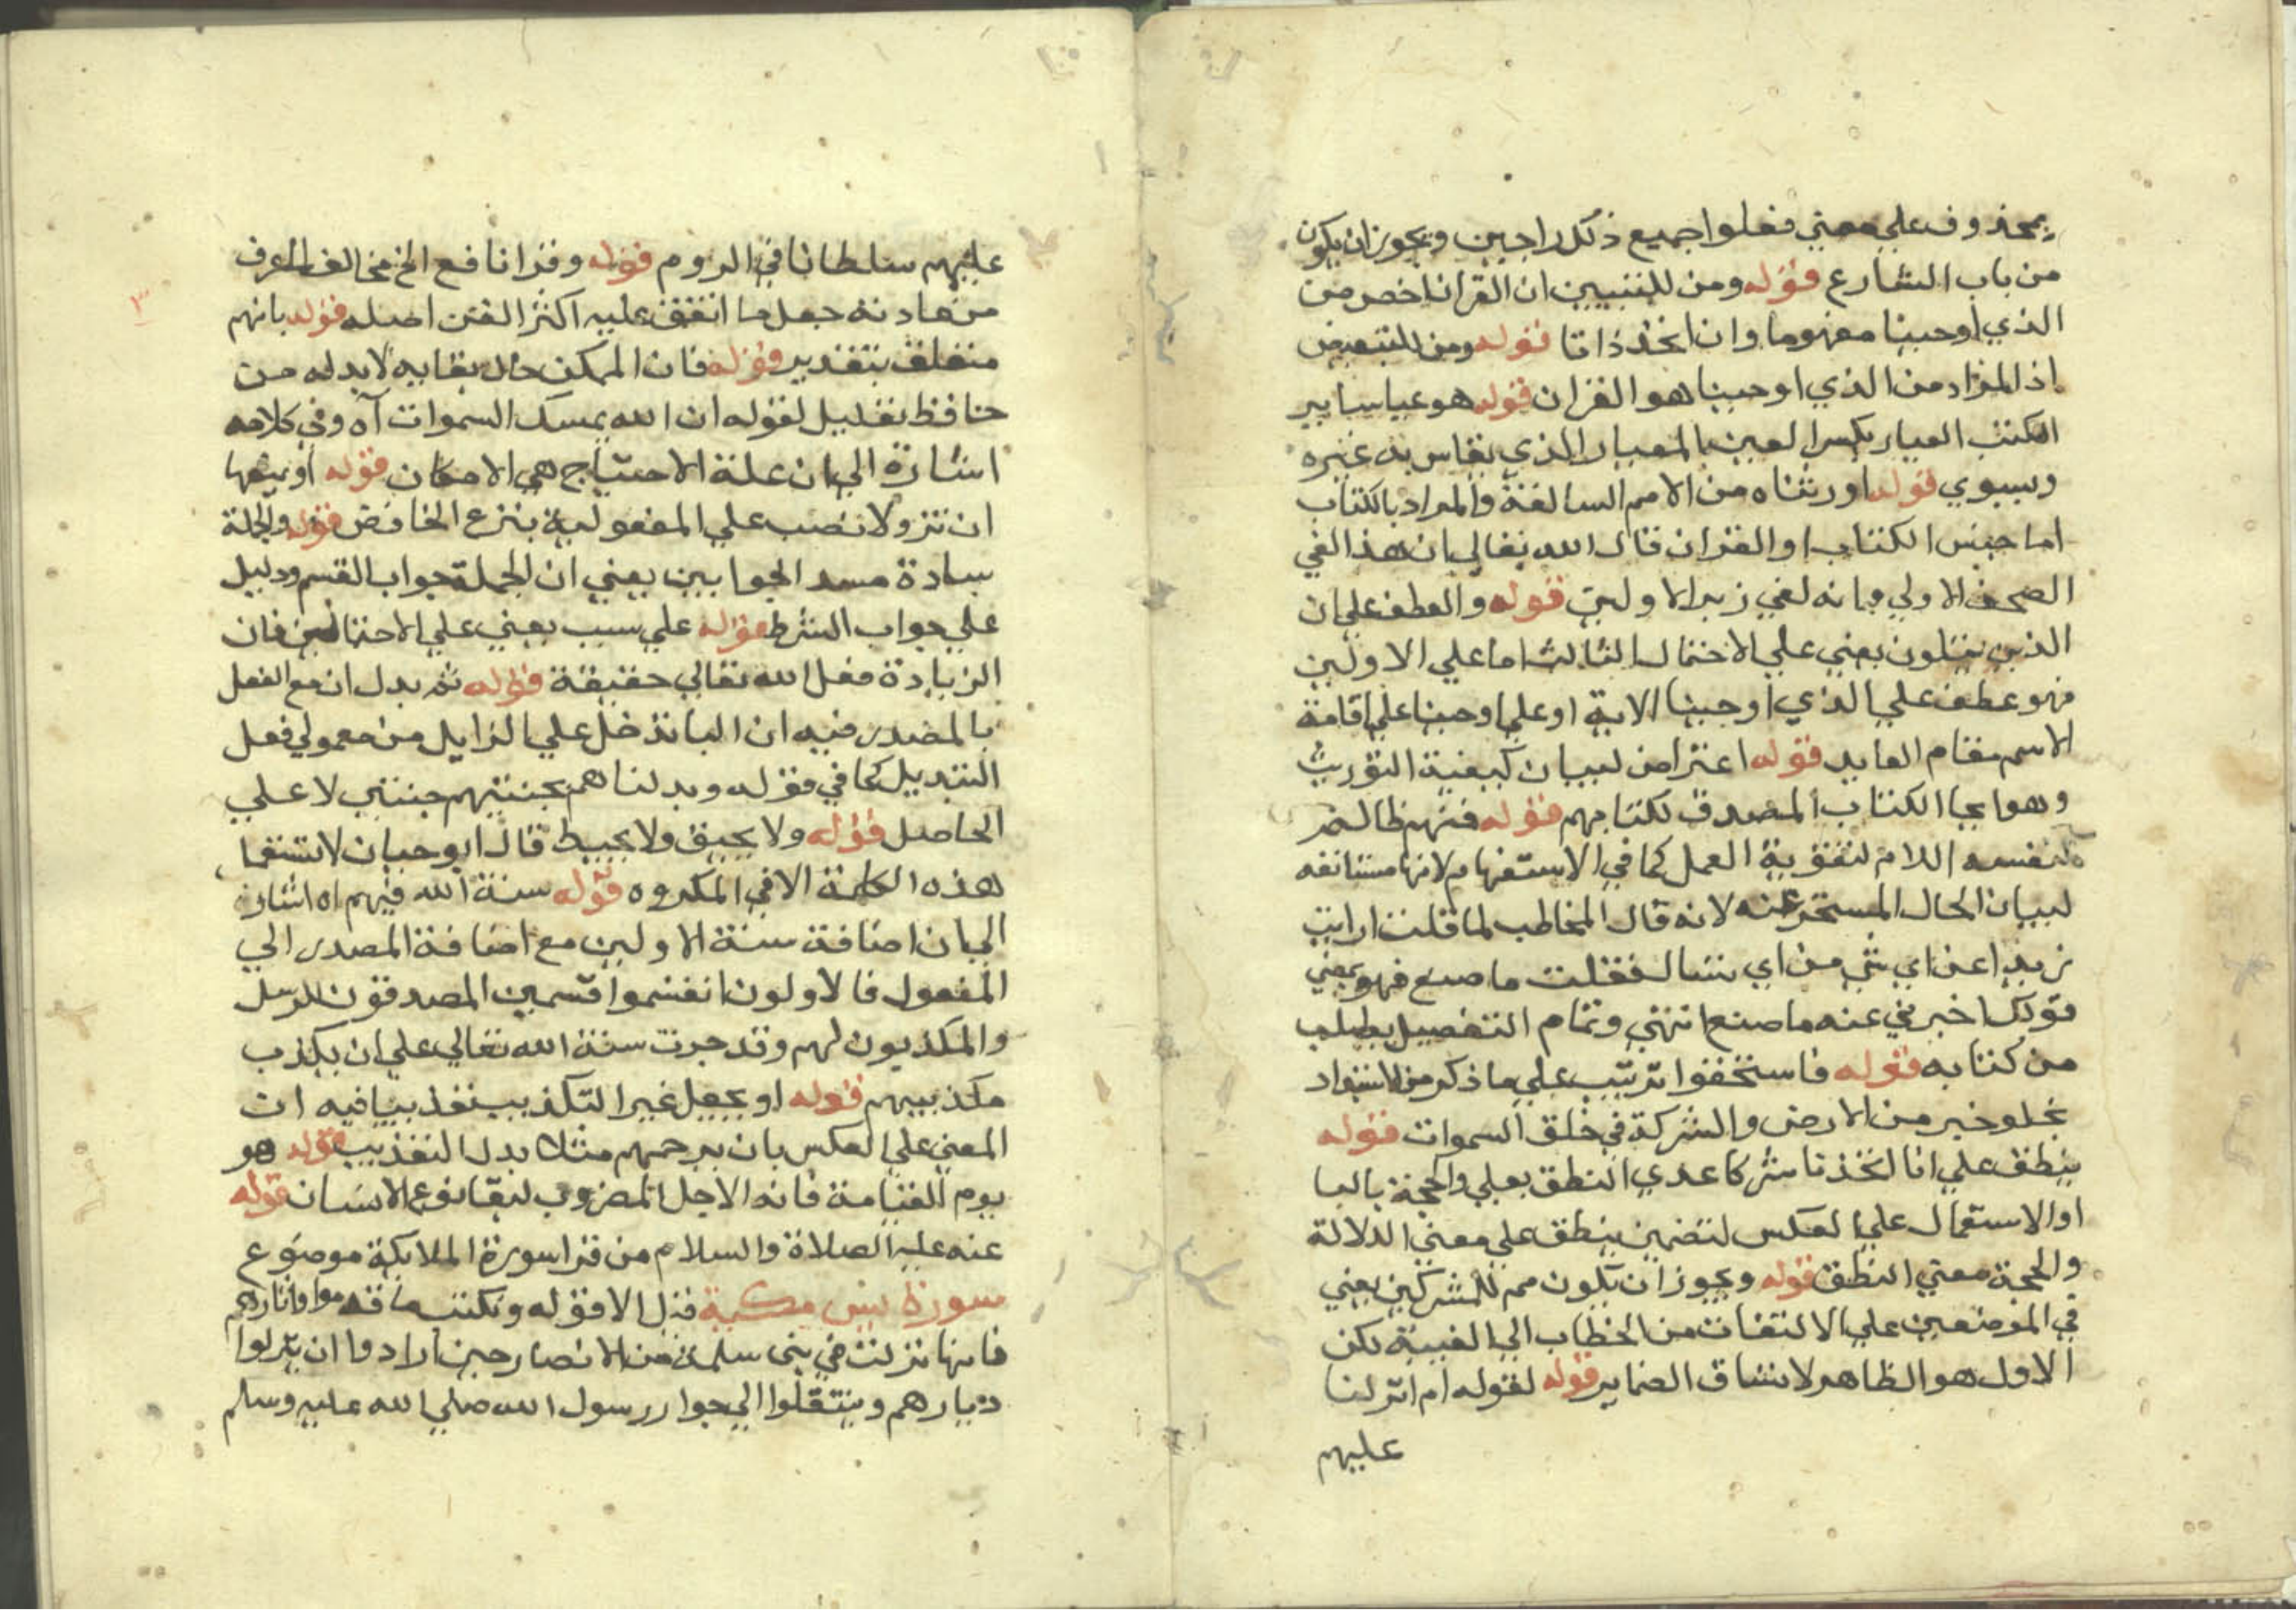 بمحذوف علي معني فعلوا جميع ذلك راجين ويجوز ان يكون
من باب التنازع قوله ومن للتبيين ان القران اخص من
الذي اوحينا مفهوما وان اتحد ذاتا قوله ومن للتبعيض
اذ المراد من الذي اوحينا هو القران قوله هو عيار ساير
الكتب العيار بكسر العين المعيار الذي يقاس به غيره
ويسوي قوله اورثناه من الامم السالفة والمراد بالكتاب
اما جنس الكتاب او القران قال الله تعالي ان هذا لفي
الصحف الاولي وانه لفي زبر الاولين قوله والعطف علي ان
الذين يتلون يعني علي الاحتمال الثالث اما علي الاولين
فهو عطف علي الذي اوحينا الاية او علي اوحينا علي اقامة
الاسم مقام العايد قوله اعتراض لبيان كيفية التوريث
وهو ايحا الكتاب المصدق لكتابهم قوله فمنهم ظالم
لنفسه اللام لتقوية العمل كما في الاستفهام لانها مستانفه
لبيان الحال المستخبر عنه لانه قال المخاطب لما قلت ارايت
زيدا عن اي شي من اي تسال فقلت ما صنع فهو بمعني
قولك اخبرني عنه ما صنع انتهي وتمام التفصيل يطلب
من كتابه قوله فاستحقوا ترتيب علي ما ذكر من الاستبداد
بخلو خير من الارض والشركة في خلق السموات قوله
ينطق علي انا اتخذنا شركا عدي النطق بعلي والحجة بالبا
او الاستعمال علي العكس لتضمين ينطق علي معني الدلالة
والحجة معني النطق قوله ويجوز ان يكون هم للمشركين يعني
في الموضعين علي الالتفات من الخطاب الي الغيبة لكن
الاول هو الظاهر لاتساق الضماير قوله لقوله ام انزلنا
عليهم
عليهم سلطانا في الروم قوله وقرا نافع الخ مخالف لما عرف
من عادته جعل ما اتفق عليه اكثر القرا اصله قوله بانهم
متعلق بتقدير قوله فان الممكن حال بقايه لا بد له من
حافظ تعليل لقوله ان الله يمسك السموات اه وفي كلامه
اشارة الي ان علة الاحتياج هي الامكان قوله او يمنعها
ان تزولا نصب علي المفعولية بنزع الخافض قوله والجملة
سادة مسد الجوابين يعني ان الجملة جواب القسم ودليل
علي جواب الشرط قوله علي سبب يعني علي الاحتمالين فان
الزيادة فعل الله تعالي حقيقة قوله ثم بدل ان مع الفعل
بالمصدر فيه ان البا تدخل علي الزايل من معمولي فعل
التبديل كما في قوله وبدلناهم بجنتيهم جنتين لا علي
الحاصل قوله ولا يحيق ولا يحيط قال ابو حيان لا تستعمل
هذه الكلمة الا في المكروه قوله سنة الله فيهم اه اشارة
الي ان اضافة سنة الاولين مع اضافة المصدر الي
المفعول فالاولون انقسموا قسمين المصدقون للرسل
والمكذبون لهم وقد جرت سنة الله تعالي علي ان يكذب
مكذبيهم قوله او يجعل غير التكذيب تعذيبا فيه ان
المعني علي العكس بان يرحمهم مثلا بدل التعذيب قوله هو
يوم القيامة فانه الاجل المضروب لبقا نوع الانسان قوله
عنه عليه الصلاة والسلام من قرا سورة الملايكة موضوع
سورة يس مكية قيل الا قوله ونكتب ما قدموا واثارهم
فانها نزلت في بني سلمة من الانصار حين ارادوا ان يتركوا
ديارهم وينتقلوا الي جوار رسول الله صلي الله عليه وسلم